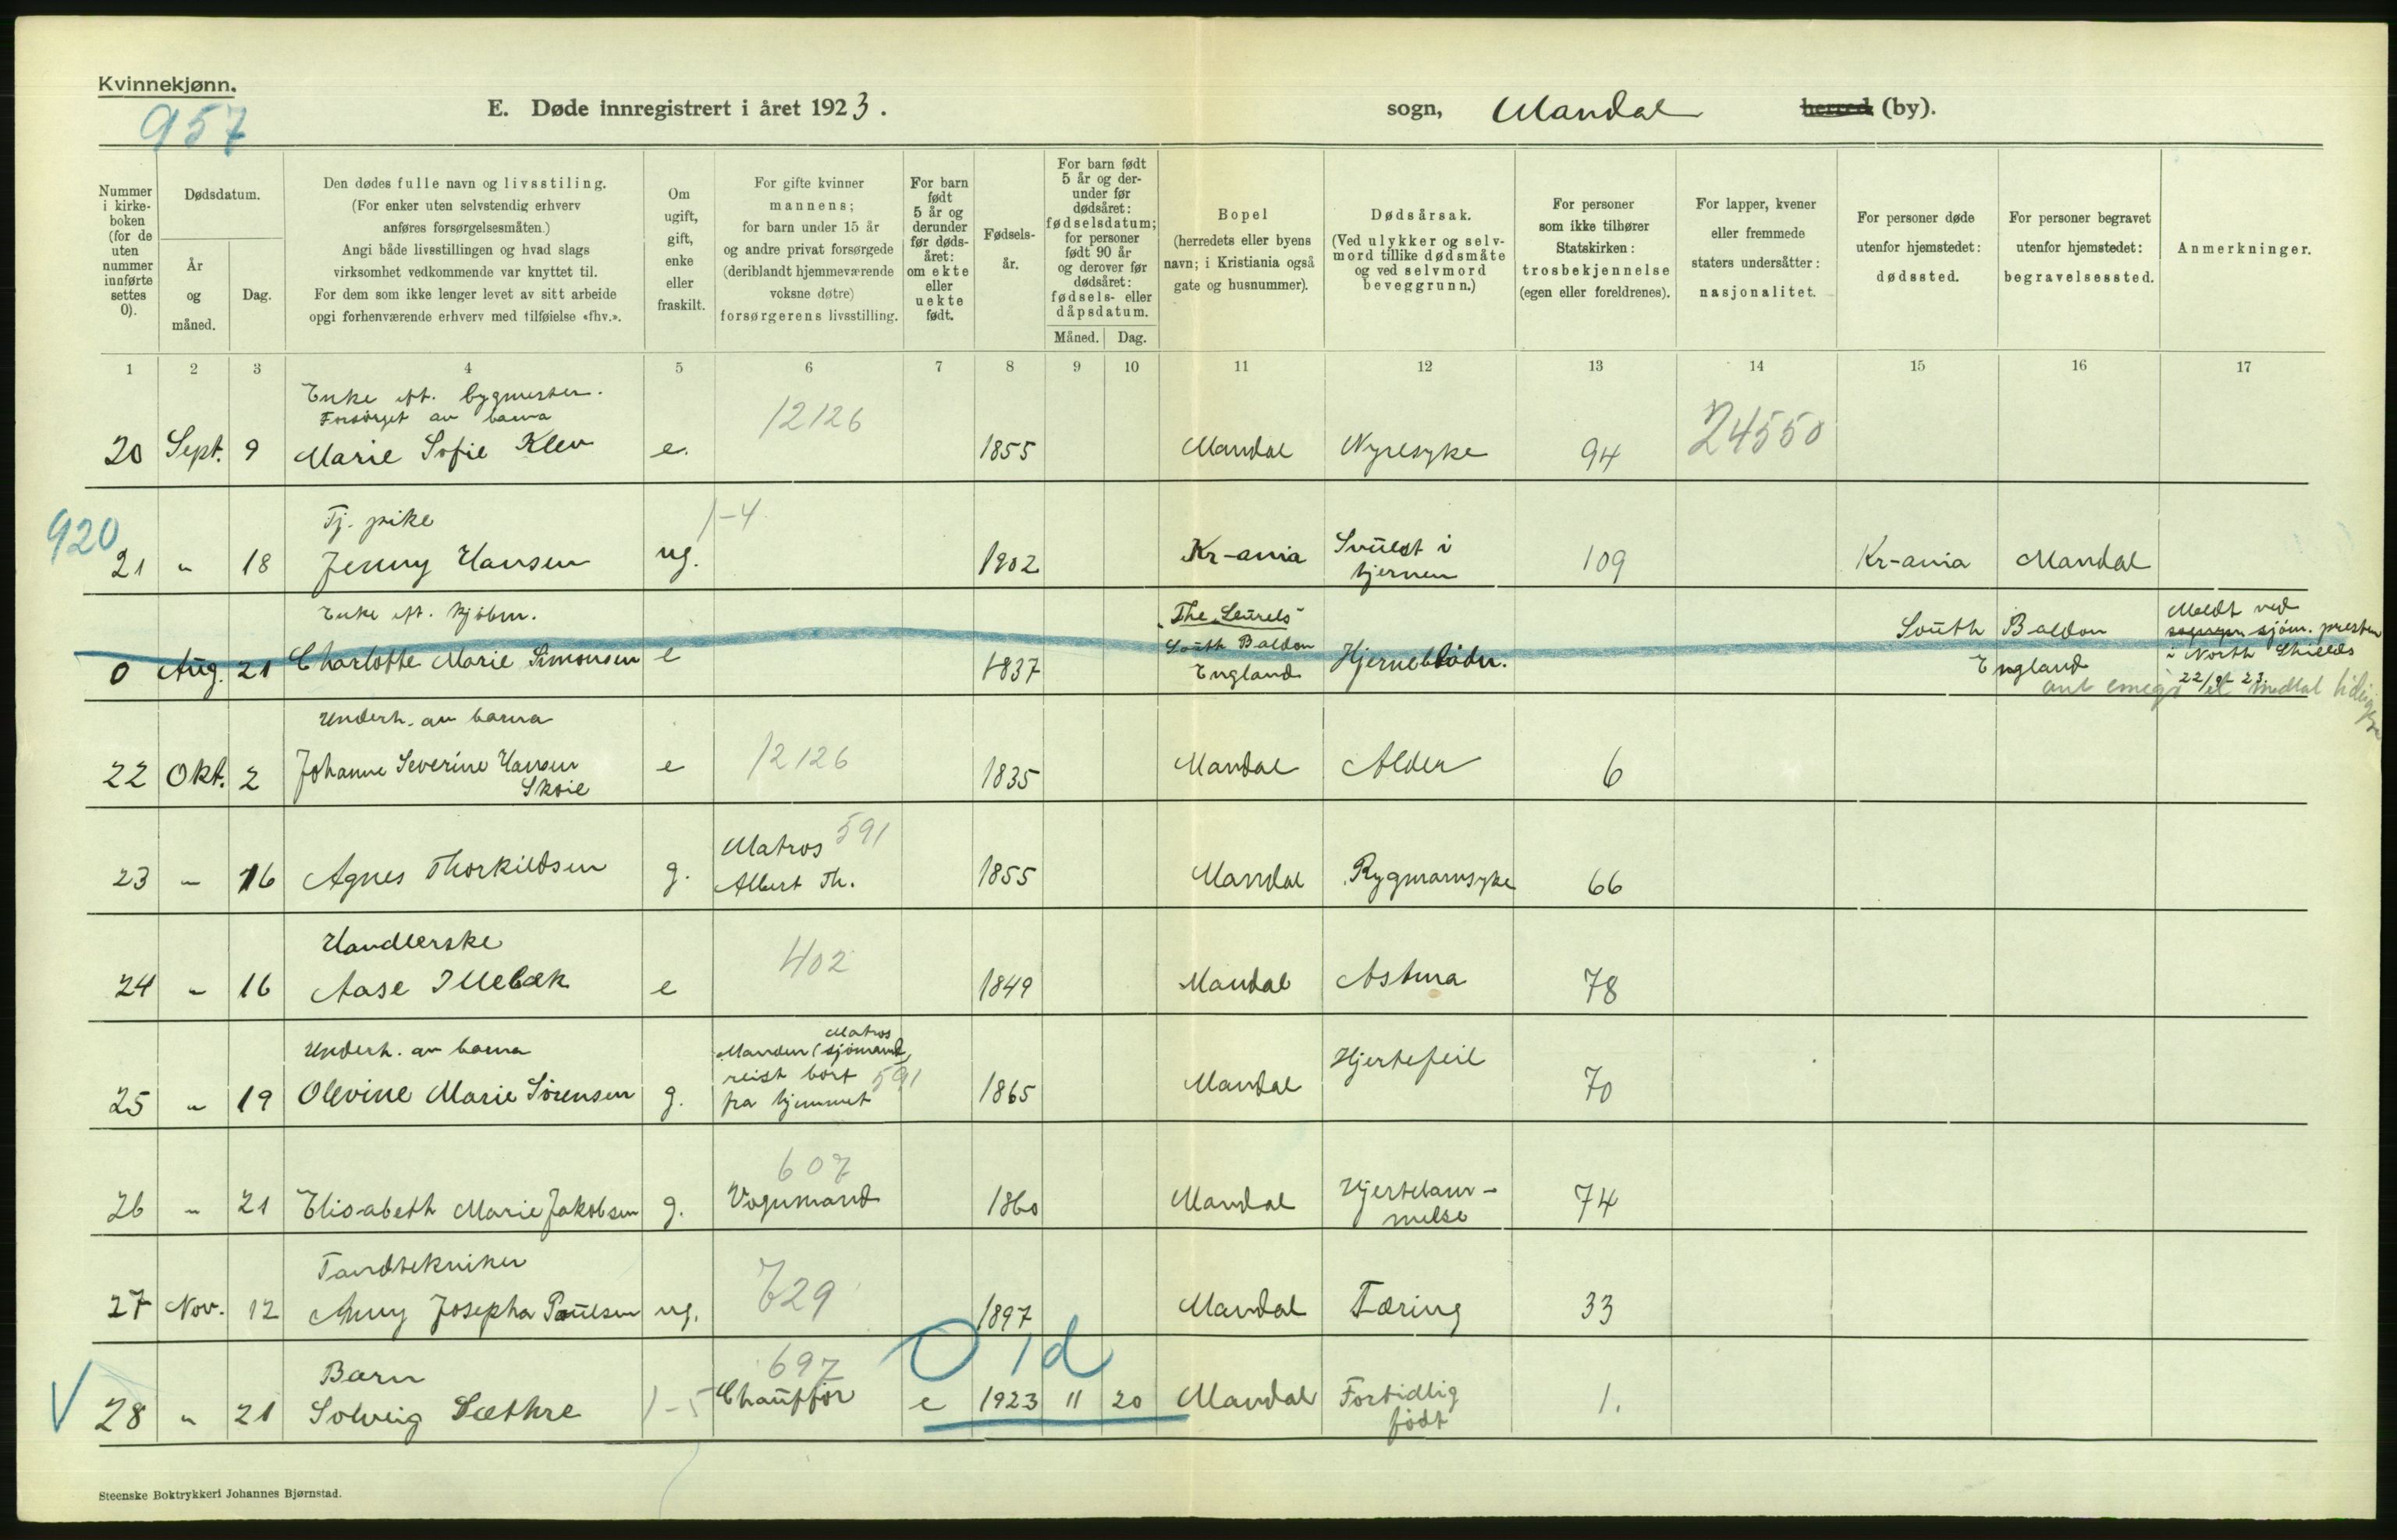 Kvinnekjønn.
957
E. Døde innregistrert i året 1923.
sogn, Mandal herred (by).
Nummer i kirke-boken (for de uten nummer innførte settes 0).
Dødsdatum.
År og måned.
Dag.
Den dødes fulle navn og livsstiling.
(For enker uten selvstendig erhverv
anføres forsørgelsesmåten.)
Angi både livsstillingen og hvad slags
virksomhet vedkommende var knyttet til.
For dem som ikke lenger levet av sitt arbeide
opgi forhenværende erhverv med tilføielse «fhv.».
Om ugift, gift, enke eller fraskilt.
For gifte kvinner
mannens;
for barn under 15 år
og andre privat forsørgede
(deriblandt hjemmeværende
voksne døtre)
forsørgerens livsstilling.
For barn født 5 år og derunder før døds-året: om ekte eller uekte født.
Fødsels-år.
For barn født 5 år og der-under før dødsåret: fødselsdatum; for personer født 90 år og derover før dødsåret: fødsels- eller dåpsdatum.
Måned. Dag.
Bopel
(herredets eller byens
navn; i Kristiania også
gate og husnummer).
Dødsårsak.
(Ved ulykker og selv-
mord tillike dødsmåte
og ved selvmord
beveggrunn.)
For personer
som ikke tilhører
Statskirken:
trosbekjennelse
(egen eller foreldrenes).
For lapper, kvener
eller fremmede
staters undersåtter:
nasjonalitet.
For personer døde
utenfor hjemstedet:
dødssted.
For personer begravet
utenfor hjemstedet:
begravelsessted.
Anmerkninger.
1 2 3 4 5 6 7 8 9 10 11 12 13 14 15 16 17
Enke eft. bygmester.
Forsørget av barna
12126
24550
20 Sept. 9 Marie Sofie Klev e. 1855 Mandal Nyresyke 94
920
Tj. pike
1-4
21 " 18 Jenny Hansen ug. 1902 Kr-ania Svulst i hjernen 109 Kr-ania Mandal
Enke eft. kjøbm.
0 Aug. 21 Charlotte Marie Simonsen e 1837 "The Laurels" South Baldon England Hjerneblødn. South Baldon England
Meldt ved
sjøm. presten
i North Shields
22/9 23.
Underh. av barna
22 Okt. 2 Johanne Severine Hansen Skoie e 12126 1835 Mandal Alder 6
23 " 16 Agnes Thorkildsen g. Matros 591 Albert Th. 1855 Mandal Rygmarvsyke 66
Handlerske
24 " 16 Aase Illebæk e 402 1849 Mandal Astma 78
Underh. av barna
25 " 19 Olevine Marie Sørensen g. Manden (sjømand, Matros reist bort fra hjemmet 591 1865 Mandal Hjertefeil 70
607
26 " 21 Elisabeth Marie Jakobsen g. Vognmand 1860 Mandal Hjertelam-melse 74
Tandtekniker
27 Nov. 12 Anny Josepha Paulsen ug. 729 1897 Mandal Tæring 33
0 1d
Barn
697
28 " 21 Solveig Sæthre 1-5 Chauffør e 1923 11 20 Mandal Fortidlig født 1.
Steenske Boktrykkeri Johannes Bjørnstad.